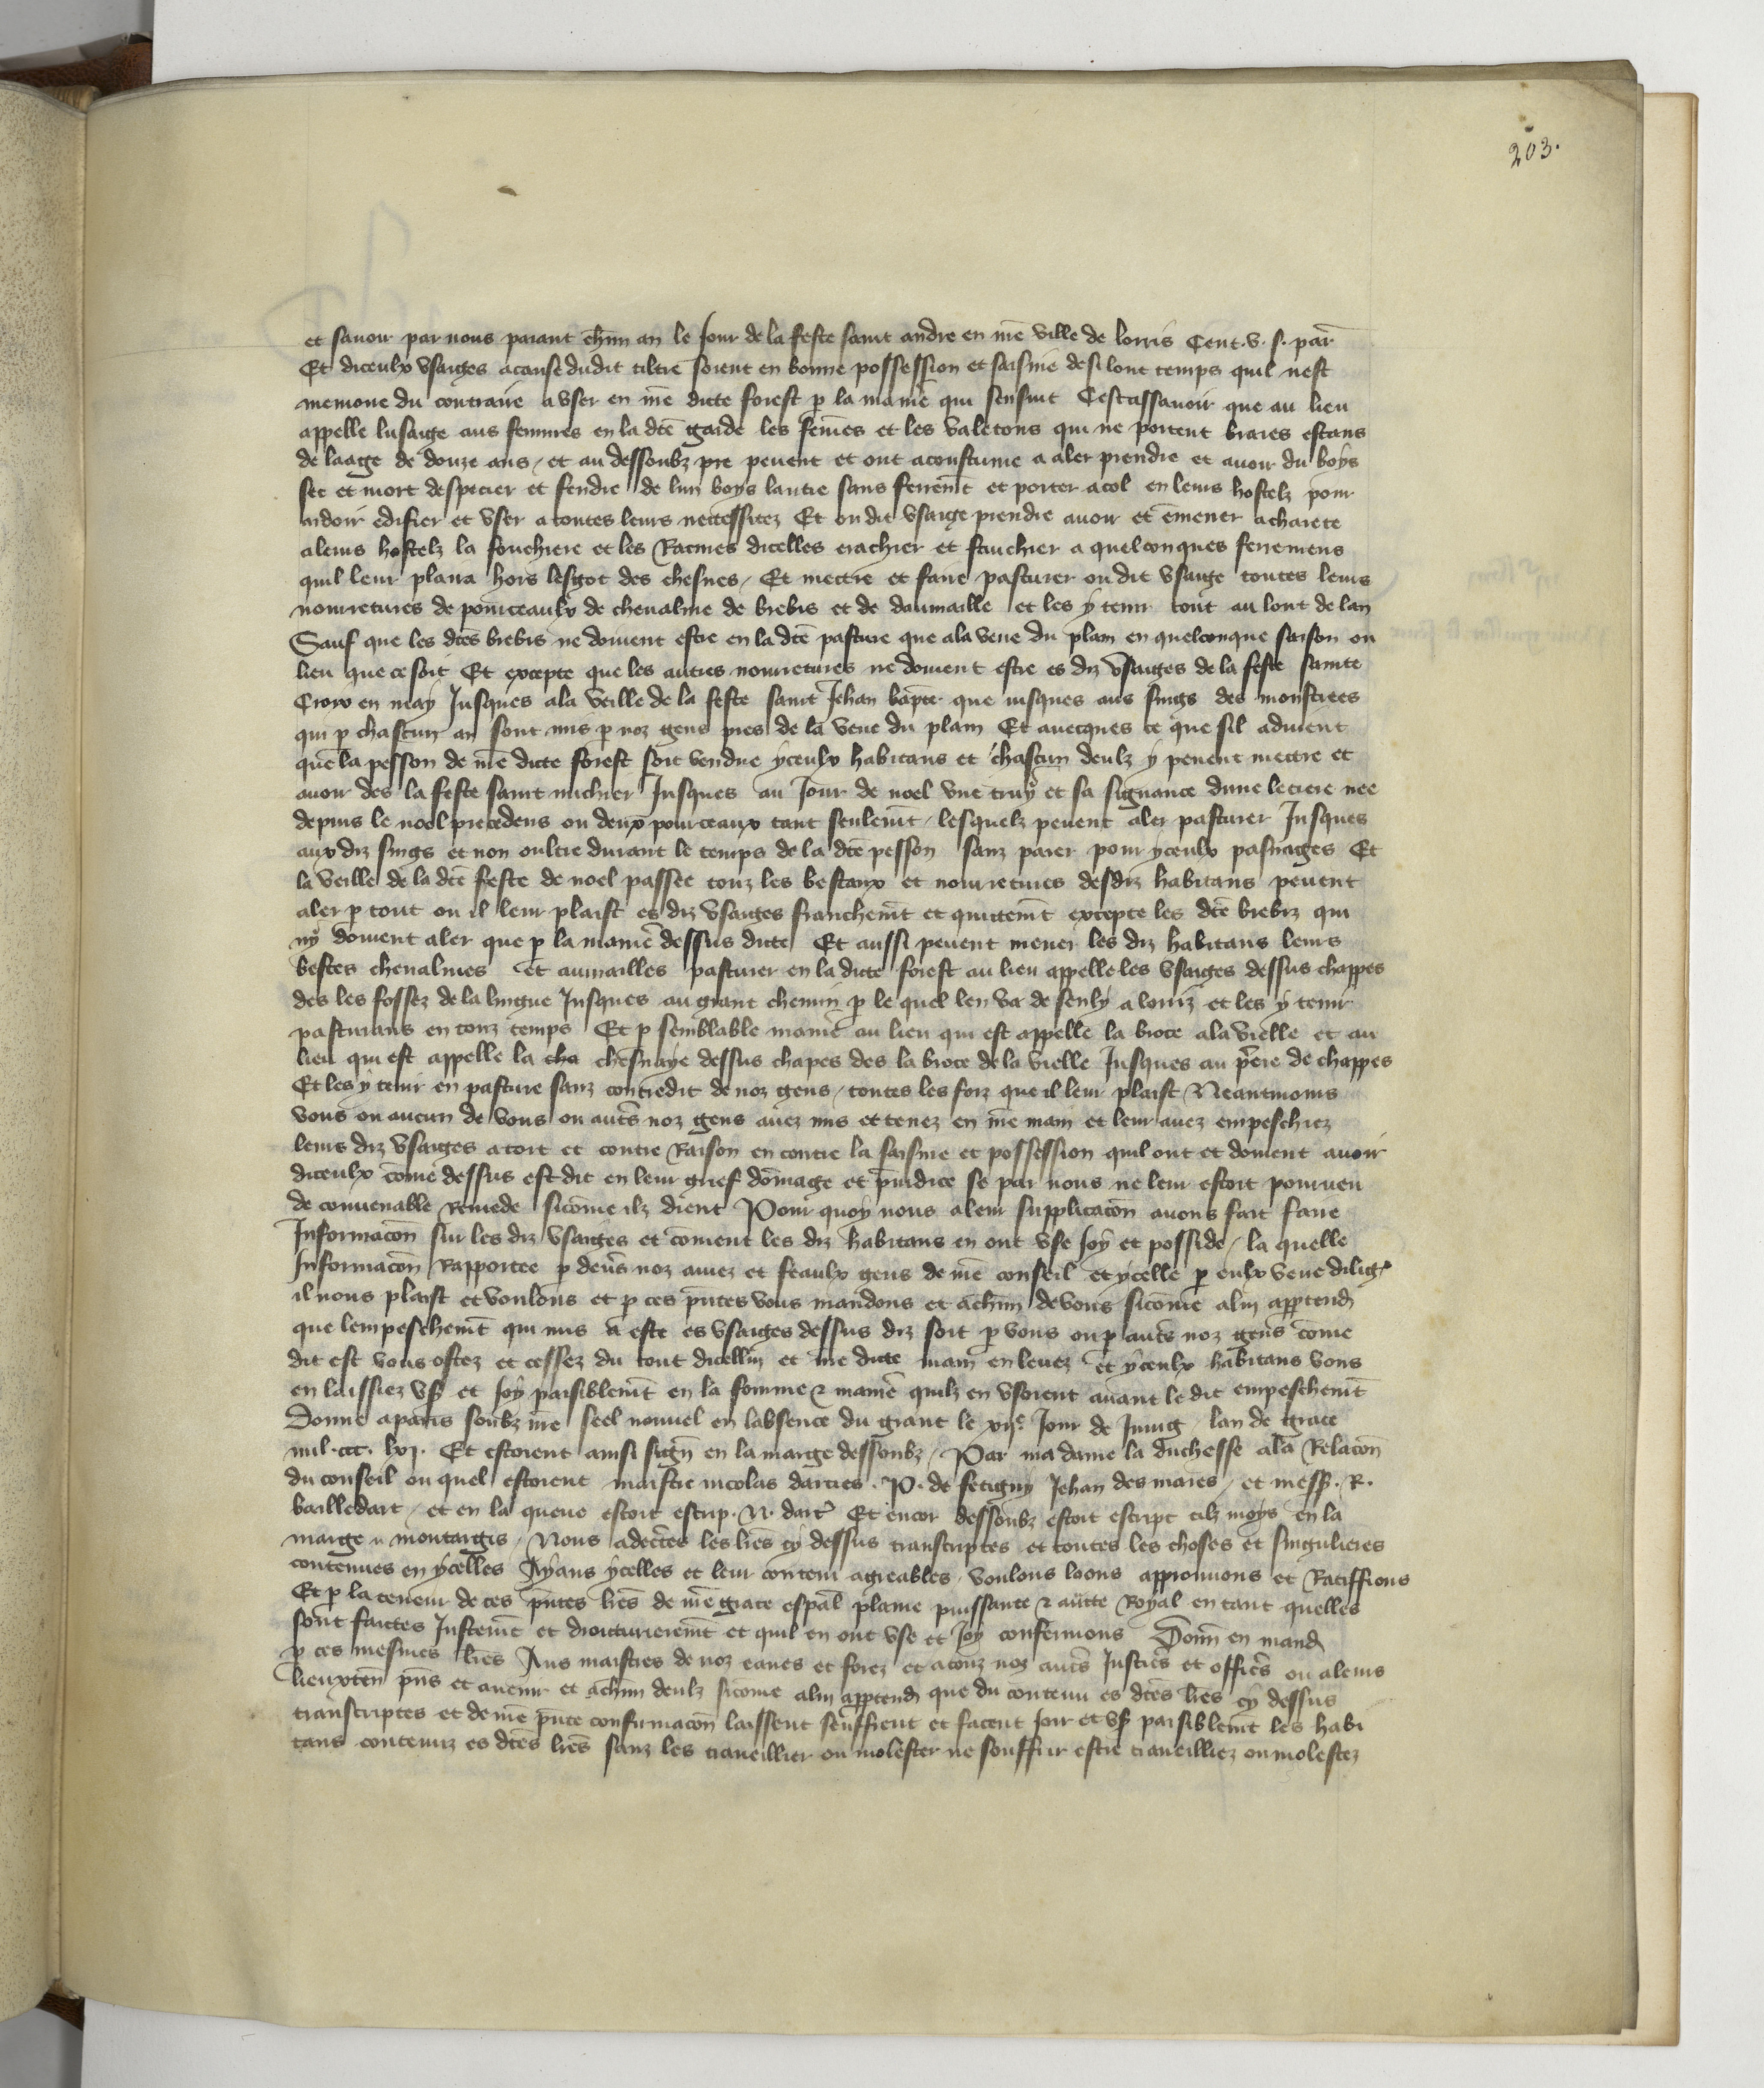 203.
et sauoir par nous paiant chūn an le Jour de la feste saint andre en nr̄e ville de lorris Cent. v. s. par̄
Et diceulx vsaiges a cause dudit tiltre soient en bonne possession et saisine de si lont temps quil nest
memoire du contraire a vser en nr̄e dicte forest p̱ la manier̄ qui sensuit Cestassauoir que au lieu
appelle lusaige aus femmes en la dc̄e garde les fem̄es et les valetons qui ne portent braies estans
de laage de douze ans / et au dessoubz pre peuent et ont acoustume a aler prendre et auoir du boys
sec et mort despecier et fendre de lun boys lautre sans ferrem̄t et porter a col en leurs hostelz pour
ardoir edifier et vser a toutes leurs neccessitez Et ou dit vsaige prendre auoir et em̄ener a charete
a leurs hostelz la fouchiere et les Racines dicelles erachier et fauchier a quelconques ferremens
quil leur plaira hors lesgot des chesnes / Et mettre et faire pasturer ou dit vsaige toutes leurs
nourretures de pourceaulx de cheualine de brebis et de daumaille et les y tenir tout au lont de lan
Sauf que les dc̄es brebis ne doiuent estre en la dc̄e pasture que a la veue du plain en quelconque saison ou
lieu que ce soit Et excepte que les autres nourretures ne doiuent estre es diz vsaiges de la feste sainte
Croix en may Jusques a la veille de la feste saint Jehan bap̄te que iusques aus sings des monstrees
qui p̱ chascun an sont mis p̱ noz gens pres de la veue du plain Et auecques ce que sil aduient
que la pesson de nr̄e dicte forest soit vendue yceulx habitans et chascun deulz y peuent mettre et
auoir des la feste saint michiel Jusques au Jour de noel vne truye et sa signance dune lectiere nee
depuis le noel precedens ou deux pourceaux tant seulem̄t / lesquelz peuent aler pasturer Jusques
aux diz sings et non oultre durant le temps de la dc̄e pesson sanz paier pour yceulx pasnages Et
la veille de la dc̄e feste de noel passee touz les bestaux et nourretures desdiz habitans peuent
aler p̱ tout ou il leur plaist es diz vsaiges franchem̄t et quictem̄t excepte les dc̄e brebiz qui
ny doiuent aler que p̱ la manier̄ dessus dicte Et aussi peuent mener les diz habitans leurs
bestes cheualines et aumailles pasturer en la dicte forest au lieu appelle les vsaiges dessus chappes
des les fossez de la lingue Jusques au grant chemin p̱ le quel len va de senly a lorriz et les y tenir
pasturans en touz temps Et p̱ semblable manier̄ au lieu qui est appelle la broce a la vielle et au
lieu qui est appelle la cha chesnaye dessus chapes des la broce de la vielle Jusques au p̄ere de chappes
Et les y tenir en pasture sanz contredit de noz gens / toutes les foiz que il leur plaist / Neantmoins
vous ou aucun de vous ou aut̄s noz gens auez mis et tenez en nr̄e main et leur auez empeschiez
leurs diz vsaiges a tort et contre Raison en contre la saisine et possession quil ont et doiuent auoir
diceulx com̄e dessus est dit en leur grief dom̄age et p̄iudice se par nous ne leur estoit pourueu
de conuenable Remede sicom̄e ilz dient Pour quoy nous a leur supplicacōn auons fait faire
Informacōn sur les diz vsaiges et com̄ent les diz habitans en ont vse Joy et posside / la quelle
Informacōn Rapportee p̱ deuers noz amez et feaulx gens de nr̄e conseil et ycelle p̱ eulx veue dilig̾
il nous plaist et voulons et p̱ ces p̄ntes vous mandons et a chūn de vous sicom̄e a lui app̱tendr̄
que lempeschem̄t qui mis a este es vsaiges dessus diz soit p̱ vous ou p̱ aut̄s noz gens com̄e
dit est vous ostez et cessez du tout dicellui et nr̄e dicte main en leuez et yceulx habitans vous
en laissiez vser et Joyr paisiblem̄t en la fourme & manier̄ quilz en vsoient auant le dit empeschem̄t
Donne a paris soubz nr̄e seel nouuel en labsence du grant le xije Jour de Juing lan de grace
mil. ccc. lxj. Et estoient ainsi sign̄ en la marge dessoubz / Par ma dame la duchesse a la Relacōn
du conseil ou quel estoient maistre nicolas darcies . P. de fetigny Jehan des mares / et mess̄. R.
bailledart / et en la queue estoit escrip. N. dart̾ Et encor dessoubz estoit escript cilz moys en la
marge a montargis / Nous adecer̄tes les lr̄es cy dessus transcriptes et toutes les choses et singulieres
contenues en ycelles Ayans ycelles et leur contenu agreables / voulons loons approuuons et Ratiffions
Et p̱ la teneur de ces p̄ntes lr̄es de nr̄e grace esp̄al plaine puissance & auc̄te Royal en tant quelles
sont faictes Justem̄t et droicturierem̄t et quil en ont vse et Joy confermons Donn̄ en mand̄
p̱ ces mesmes lr̄es Aus maistres de noz eaues et forez et a touz noz aut̄s Justiciēs et officiēs ou a leurs
lieuxten̄ p̄ns et auenir et a chūn deulz sicome a lui app̱tendr̄ que du contenu es dc̄es lr̄es cy dessus
transcriptes et de nr̄e p̄nte confirmacōn laissent seuffrent et facent Joir et vser paisiblem̄t les habi
tans contenuz es dc̄es lr̄es sanz les trauellier ou molester ne souffrir estre trauelliez ou molestez